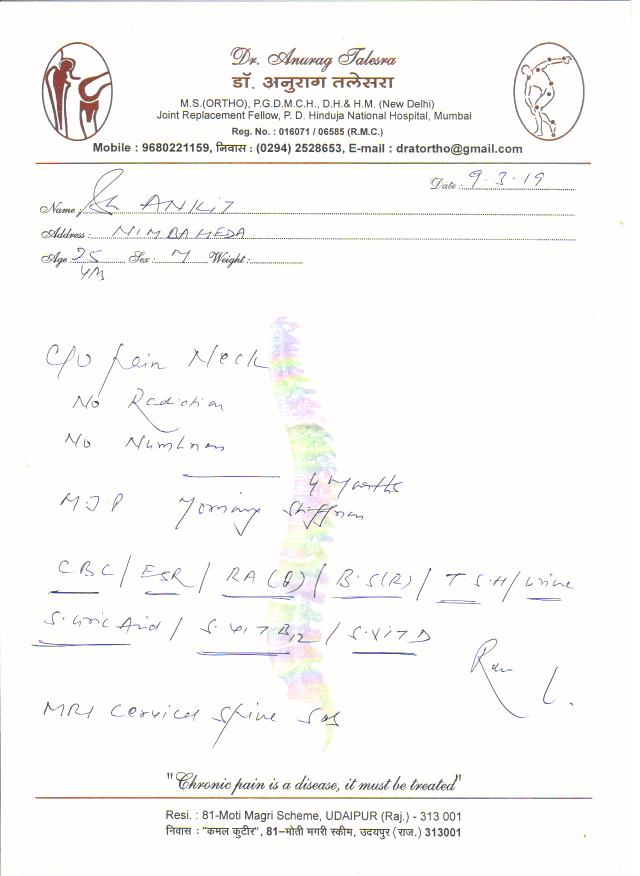 Dr. Anurag Talesra
डॉ. अनुराग तलेसरा
M.S.(ORTHO), P.G.D.M.C.H., D.H.& H.M. (New Delhi)
Joint Replacement Fellow, P. D. Hinduja National Hospital, Mumbai
Reg. No. : 016071 / 06585 (R.M.C.)
Mobile : 9680221159, निवास : (0294) 2528653, E-mail : dratortho@gmail.com
Date : 9.3.19
Name : Sh ANKIT
Address : NIMBAHEDA
Age : 25 Sex : M Weight :
C/O Pain Neck
No Radiation
No Numbness
4 Months
M.J.P Morning Stiffness
CBC / ESR / RA (Q) / B.S(R) / T.S.H / Urine
S. Uric Acid / S. VIT B12 / S. VIT D
MRI Cervical Spine SOS
"Chronic pain is a disease, it must be treated"
Resi. : 81-Moti Magri Scheme, UDAIPUR (Raj.) - 313 001
निवास : "कमल कुटीर", 81–मोती मगरी स्कीम, उदयपुर (राज.) 313001